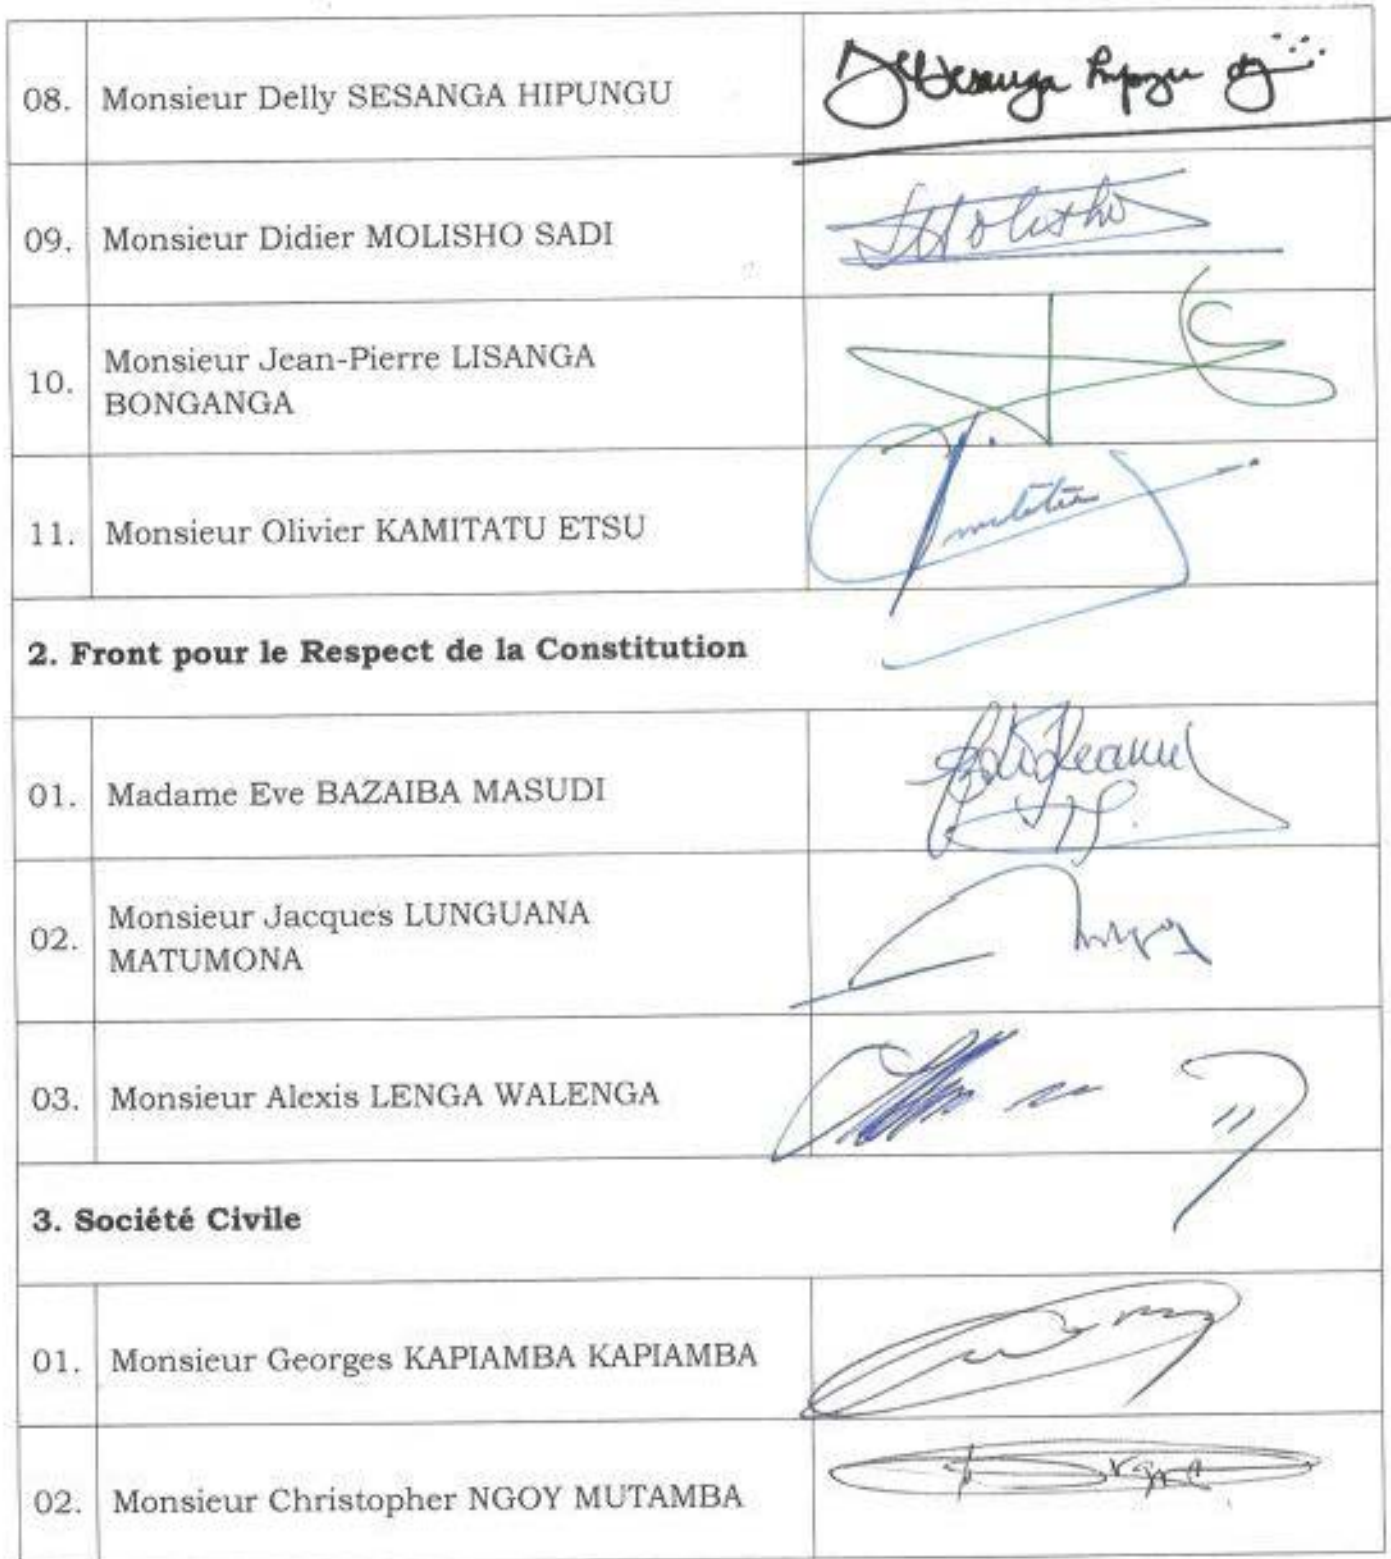 08. Monsieur Delly SESANGA HIPUNGU
09. Monsieur Didier MOLISHO SADI
Molisho
10. Monsieur Jean-Pierre LISANGA
BONGANGA
11. Monsieur Olivier KAMITATU ETSU
2. Front pour le Respect de la Constitution
01. Madame Eve BAZAIBA MASUDI
02. Monsieur Jacques LUNGUANA
MATUMONA
03. Monsieur Alexis LENGA WALENGA
3. Société Civile
01. Monsieur Georges KAPIAMBA KAPIAMBA
02. Monsieur Christopher NGOY MUTAMBA